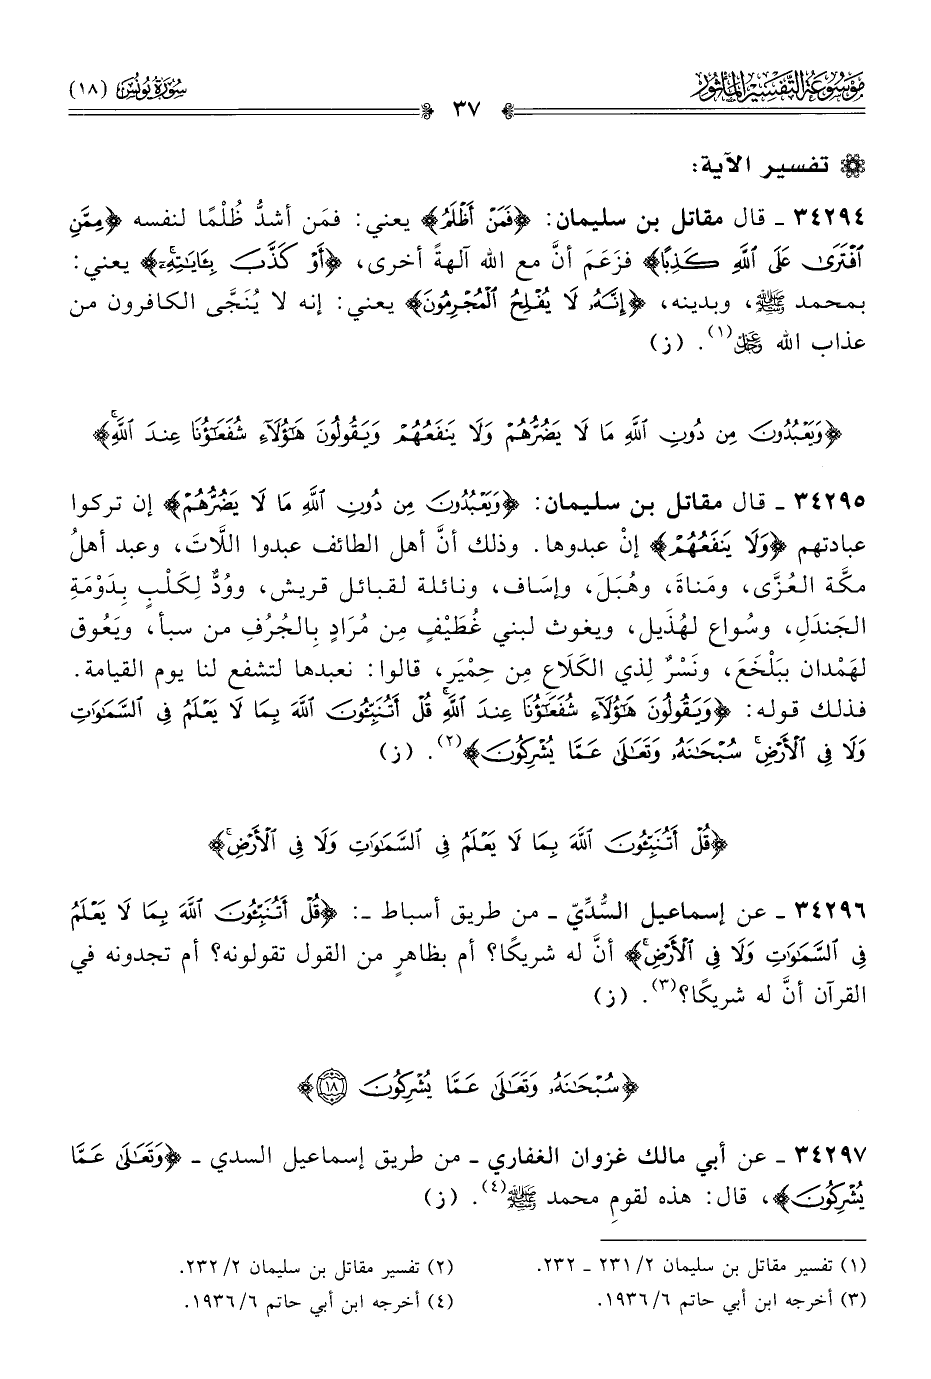 مَوْسُوعَة التَّفْسِير المَأْثُور
٣٧
سُورَة يُونس (١٨)
تفسير الآية:
٣٤٢٩٤ ـ قال مقاتل بن سليمان: ﴿فَمَنْ أَظْلَمُ﴾ يعني: فمَن أشدُّ ظُلْمًا لنفسه ﴿مِمَّنِ
ٱفْتَرَىٰ عَلَى ٱللَّهِ كَذِبًا﴾ فزَعَمَ أنَّ مع الله آلهةً أخرى، ﴿أَوْ كَذَّبَ بِـَٔايَـٰتِهِۦٓ﴾ يعني:
بمحمد ﷺ، وبدينه، ﴿إِنَّهُۥ لَا يُفْلِحُ ٱلْمُجْرِمُونَ﴾ يعني: إنه لا يُنَجَّى الكافرون من
عذاب الله ﷿(١). (ز)
﴿وَيَعْبُدُونَ مِن دُونِ ٱللَّهِ مَا لَا يَضُرُّهُمْ وَلَا يَنفَعُهُمْ وَيَقُولُونَ هَـٰٓؤُلَآءِ شُفَعَـٰٓؤُنَا عِندَ ٱللَّهِۚ﴾
٣٤٢٩٥ ـ قال مقاتل بن سليمان: ﴿وَيَعْبُدُونَ مِن دُونِ ٱللَّهِ مَا لَا يَضُرُّهُمْ﴾ إن تركوا
عبادتهم ﴿وَلَا يَنفَعُهُمْ﴾ إنْ عبدوها. وذلك أنَّ أهل الطائف عبدوا اللَّاتَ، وعبد أهلُ
مكَّة العُزَّى، ومَناةَ، وهُبَلَ، وإسَاف، ونائلة لقبائل قريش، وودٌّ لِكَلْبٍ بِدَوْمَةِ
الجَندَلِ، وسُواع لهُذَيل، ويغوث لبني غُطَيْفٍ مِن مُرَادٍ بِالجُرُفِ من سبأ، ويَعُوق
لهَمْدان ببَلْخَعَ، ونَسْرٌ لِذي الكَلَاعِ مِن حِمْيَرٍ، قالوا: نعبدها لتشفع لنا يوم القيامة.
فذلك قوله: ﴿وَيَقُولُونَ هَـٰٓؤُلَآءِ شُفَعَـٰٓؤُنَا عِندَ ٱللَّهِۚ قُلْ أَتُنَبِّـُٔونَ ٱللَّهَ بِمَا لَا يَعْلَمُ فِى ٱلسَّمَـٰوَٰتِ
وَلَا فِى ٱلْأَرْضِۚ سُبْحَـٰنَهُۥ وَتَعَـٰلَىٰ عَمَّا يُشْرِكُونَ﴾(٢). (ز)
﴿قُلْ أَتُنَبِّـُٔونَ ٱللَّهَ بِمَا لَا يَعْلَمُ فِى ٱلسَّمَـٰوَٰتِ وَلَا فِى ٱلْأَرْضِۚ﴾
٣٤٢٩٦ ـ عن إسماعيل السُّدِّيّ ـ من طريق أسباط ـ: ﴿قُلْ أَتُنَبِّـُٔونَ ٱللَّهَ بِمَا لَا يَعْلَمُ
فِى ٱلسَّمَـٰوَٰتِ وَلَا فِى ٱلْأَرْضِۚ﴾ أنَّ له شريكًا؟ أم بظاهرٍ من القول تقولونه؟ أم تجدونه في
القرآن أنَّ له شريكًا؟(٣). (ز)
﴿سُبْحَـٰنَهُۥ وَتَعَـٰلَىٰ عَمَّا يُشْرِكُونَ ١٨﴾
٣٤٢٩٧ ـ عن أبي مالك غزوان الغفاري ـ من طريق إسماعيل السدي ـ ﴿وَتَعَـٰلَىٰ عَمَّا
يُشْرِكُونَ﴾، قال: هذه لقومِ محمد ﷺ(٤). (ز)
(١) تفسير مقاتل بن سليمان ٢/ ٢٣١ ـ ٢٣٢.
(٢) تفسير مقاتل بن سليمان ٢/ ٢٣٢.
(٣) أخرجه ابن أبي حاتم ٦/ ١٩٣٦.
(٤) أخرجه ابن أبي حاتم ٦/ ١٩٣٦.